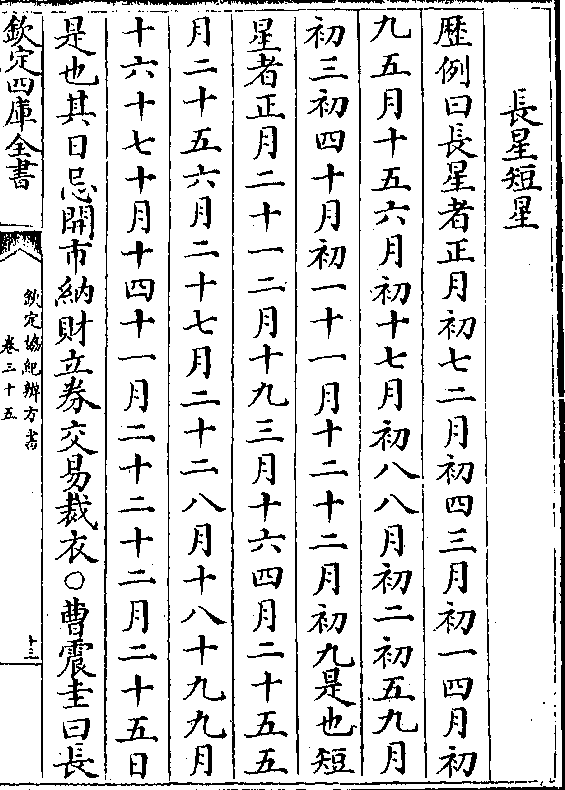 長星短星
歴例曰長星者正月初七二月初四三月初一四月初
九五月十五六月初十七月初八八月初二初五九月
初三初四十月初一十一月十二十二月初九是也短
星者正月二十一二月十九三月十六四月二十五五
月二十五六月二十七月二十二八月十八十九九月
十六十七十月十四十一月二十二十二月二十五日
是也其日忌開市納財立券交易裁衣○曹震圭曰長
欽定四庫全書
欽定協紀辨方書
卷三十五
十三